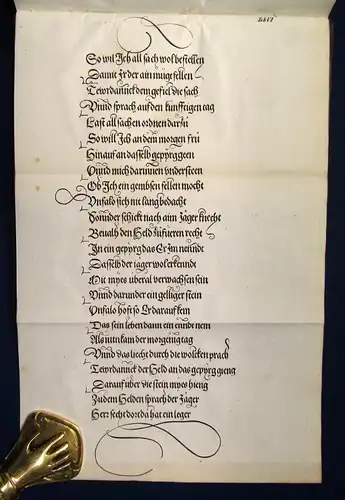 So wil Ich all sach wol bestellen
Damit Er der ain müg fellen
Tewrdannck dem gefiel die sach
Vnnd sprach auf den kunfftigen tag
Last all sachen ordnen darzů
So will Ich an dem morgen frů
Hinauf an dasselb gepyrg geen
Vnnd mich darinnen vndersteen
Ob Ich ein gembsen fellen mocht
Vnfalo sich nit lang bedacht
Sonnder schickt nach aim Jäger knecht
Beualh den Held zůfueren recht
In ein gepyrg das Er Im nenndt
Dasselb der jager wol erkenndt
Mit myes überal verwachsen sein
Vnnd darunder ein gelliger stein
Vnfalo hoft so Er darauf kem
Das sein leben dann ein ennde nem
Als nun kam der morgen tag
Vnnd das liecht durch die wolcken prach
Tewrdannck der Held an das gepyrg gieng
Darauf über die stein myos hieng
Zu dem Helden sprach der Jäger
Herr secht dort da hat ein leger